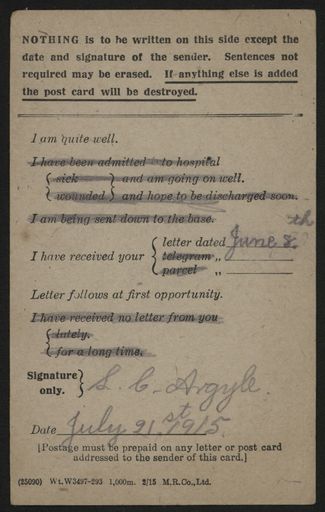 NOTHING is to be written on this side except the
date and signature of the sender. Sentences not
required may be erased. If anything else is added
the post card will be destroyed.
I am quite well.
I have been admitted into hospital
{ sick } and am going on well.
{ wounded } and hope to be discharged soon.
I am being sent down to the base.
I have received your { letter dated June 8th
telegram „
parcel „
Letter follows at first opportunity.
I have received no letter from you
{ lately.
{ for a long time.
Signature only. } S. C. Argyle.
Date July 21st 1915
[Postage must be prepaid on any letter or post card
addressed to the sender of this card.]
(25090) Wt.W3497-293 1,000m. 2/15 M.R.Co.,Ltd.